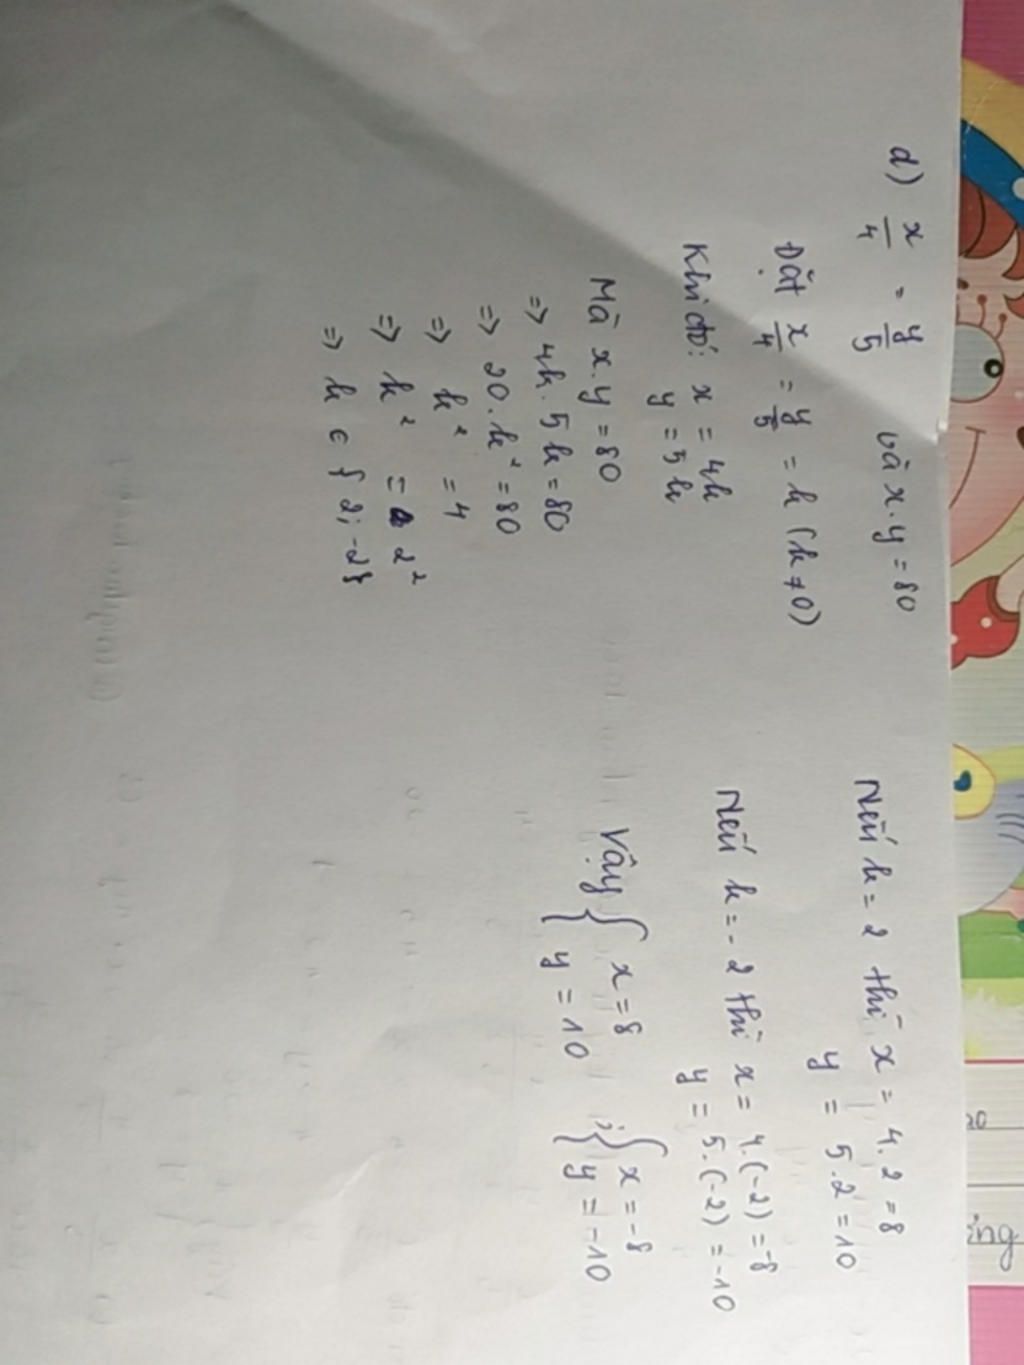 d) x/4 = y/5 và x.y = 80
Đặt x/4 = y/5 = k (k ≠ 0)
Khi đó: x = 4k
y = 5k
Mà x.y = 80
=> 4k.5k = 80
=> 20.k² = 80
=> k² = 4
=> k² = 2²
=> k ∈ {2; -2}
Nếu k = 2 thì x = 4.2 = 8
y = 5.2 = 10
Nếu k = -2 thì x = 4.(-2) = -8
y = 5.(-2) = -10
Vậy { x = 8 ; { x = -8
y = 10 y = -10
20